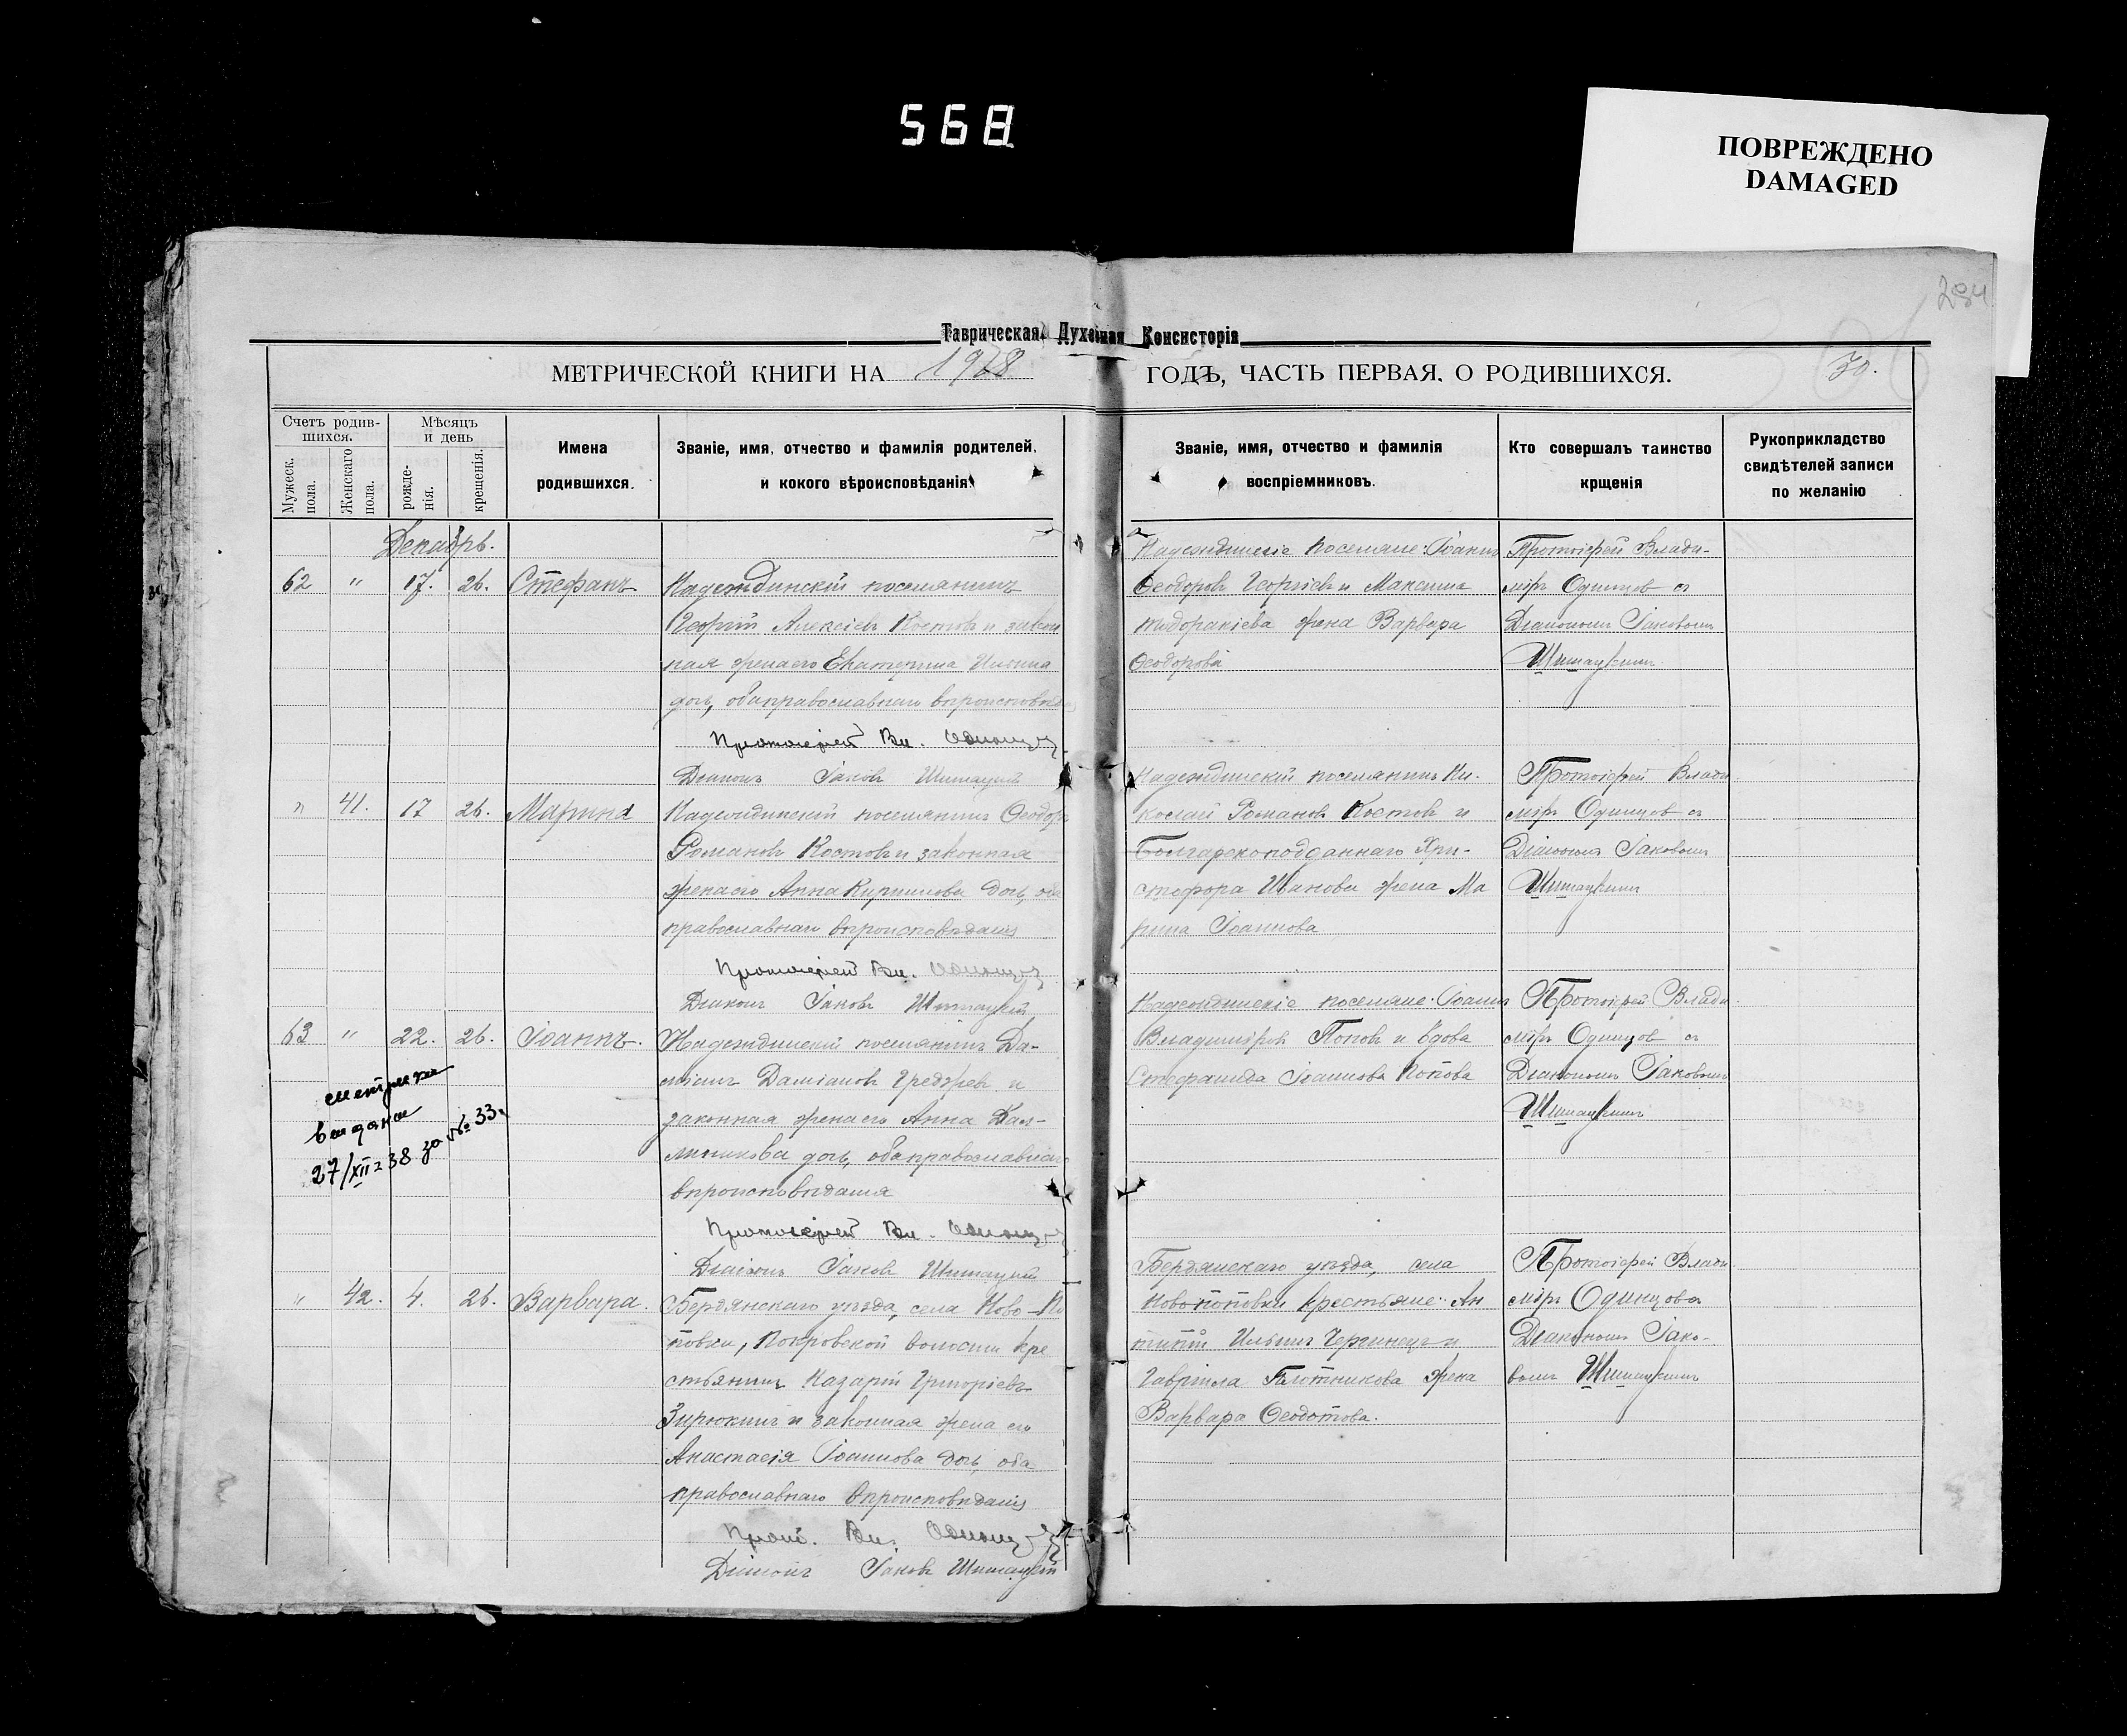 568
ПОВРЕЖДЕНО
DAMAGED
284
Таврическая Духовная Консисторія
МЕТРИЧЕСКОЙ КНИГИ НА 1918
ГОДЪ, ЧАСТЬ ПЕРВАЯ, О РОДИВШИХСЯ.
70.
Счетъ родив-
шихся.
Мужеск.
пола.
Женскаго
пола.
Мѣсяцъ
и день
рожде-
нія.
крещенія.
Имена
родившихся.
Званіе, имя, отчество и фамилія родителей,
и кокого вѣроисповѣданія
Званіе, имя, отчество и фамилія
воспріемниковъ.
Кто совершалъ таинство
крщенія
Рукоприкладство
свидѣтелей записи
по желанію
Декабрь.
62 " 17. 26. Стефанъ
Надеждинскій поселянинъ
Георгій Алексіевъ Костовъ и закон
ная жена его Екатерина Ильина
дочь, оба православнаго вѣроисповѣда
Протоіерей Вл. Одинцов
Діаконъ Іаковъ Шишацкій
Надеждинскіе поселяне: Іоаннъ
Ѳеодоровъ Георгіевъ и Максима
жена Варвара
Ѳеодорова
Протоіерей Влади-
міръ Одинцов съ
Діакономъ Іаковомъ
Шишацкимъ
" 41. 17 26. Марина
Надеждинскій поселянинъ Ѳеодоръ
Романовъ Костовъ и законная
жена его Анна Кириллова дочь, оба
православнаго вѣроисповѣданія
Протоіерей Вл. Одинцов
Діаконъ Іаковъ Шишацкій
Надеждинскій поселянинъ Ни-
колай Романовъ Костовъ и
Болгарскоподданнаго Хри-
стофора Шанова жена Ма
рина Іоаннова
Протоіерей Влади
міръ Одинцов съ
Діакономъ Іаковомъ
Шишацкимъ
63 " 22. 26. Іоаннъ.
Надеждинскій поселянинъ Да-
міанъ Даміановъ и
законная жена его Анна Кал-
линикова дочь, оба православнаго
вѣроисповѣданія
Протоіерей Вл. Одинцов
Діаконъ Іаковъ Шишацкій
метрика
выдана
27/XII-38 за № 33.
Надеждинскіе поселяне: Іоаннъ
Владиміровъ Поповъ и вдова
Стефанида Іоаннова Попова
Протоіерей Влади
міръ Одинцов съ
Діакономъ Іаковомъ
Шишацкимъ
" 42. 4. 26. Варвара.
Бердянскаго уѣзда, села Ново-По
повки, Покровской волости кре
стьянинъ Назарій Григоріевъ
Зирюкинъ и законная жена его
Анастасія Іоаннова дочь, оба
православнаго вѣроисповѣданія
Прот. Вл. Одинцов
Діаконъ Іаковъ Шишацкій
Бердянскаго уѣзда, села
Новопоповки крестьяне: Ан
типій Ильинъ и
Гавріила Плотникова жена
Варвара Ѳеодотова.
Протоіерей Влади
міръ Одинцовъ
Діакономъ Іако-
вомъ Шишацкимъ